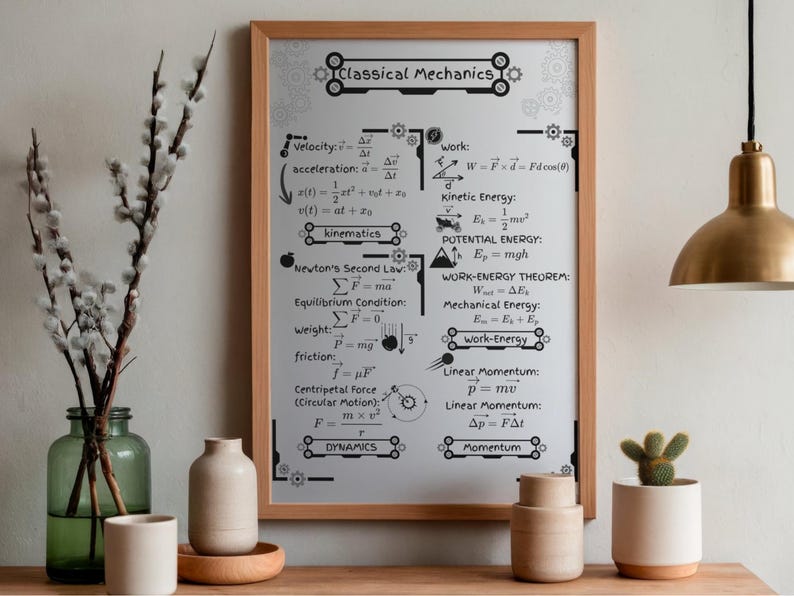 Classical Mechanics
Velocity: v⃗ = Δx⃗/Δt
acceleration: a⃗ = Δv⃗/Δt
x(t) = 1/2 xt² + v₀t + x₀
v(t) = at + x₀
kinematics
Newton's Second Law:
∑ F⃗ = ma⃗
Equilibrium Condition:
∑ F⃗ = 0⃗
Weight:
P⃗ = mg⃗
g⃗
friction:
f⃗ = μF⃗
Centripetal Force
(Circular Motion):
F = m × v²/r
DYNAMICS
Work:
F⃗
θ
d⃗
W = F⃗ × d⃗ = Fd cos(θ)
Kinetic Energy:
v⃗
Eₖ = 1/2 mv²
POTENTIAL ENERGY:
h
Eₚ = mgh
WORK-ENERGY THEOREM:
Wₙₑₜ = ΔEₖ
Mechanical Energy:
Eₘ = Eₖ + Eₚ
Work-Energy
Linear Momentum:
p⃗ = mv⃗
Linear Momentum:
Δp⃗ = F⃗Δt
Momentum